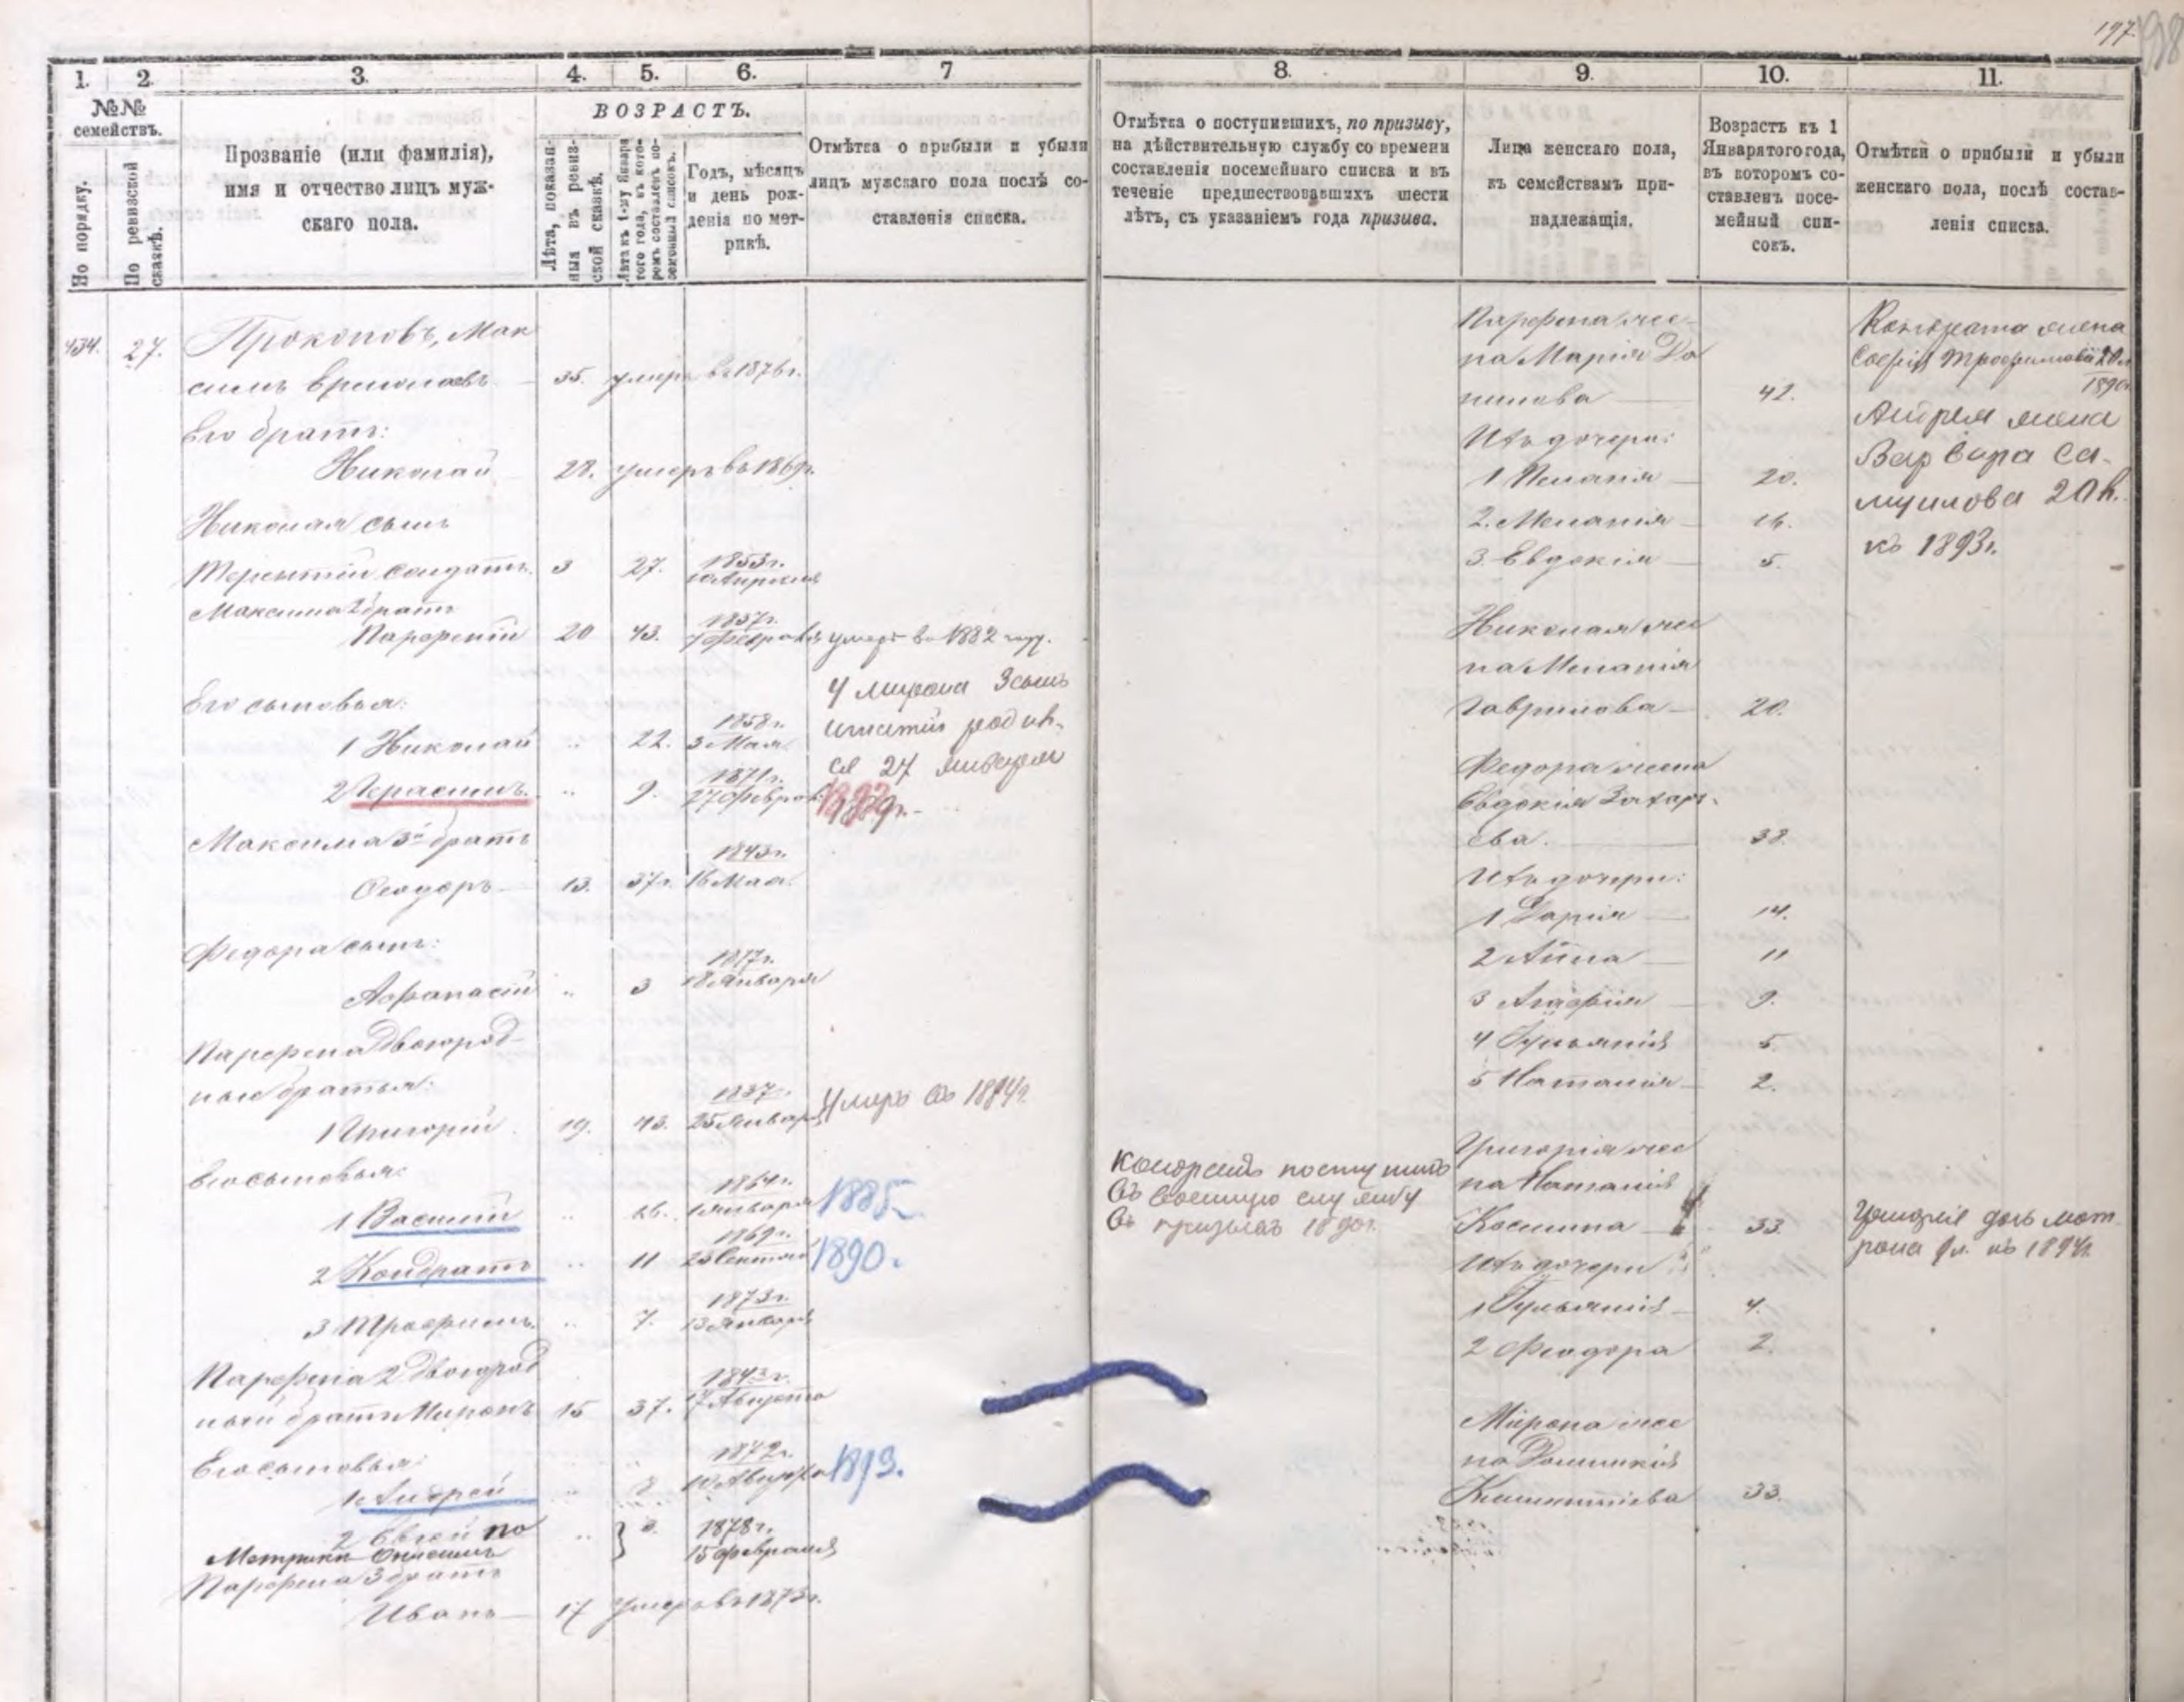 197.
198
1. 2. 3. 4. 5. 6. 7
№№ семействъ.
По порядку.
По ревизской сказкѣ.
Прозваніе (или фамилія),
имя и отчество лицъ муж-
скаго пола.
ВОЗРАСТЪ.
Лѣта, показан-
ныя въ ревиз-
ской сказкѣ.
Лѣта къ 1-му Января
того года, въ кото-
ромъ составленъ по-
семейный списокъ.
Годъ, мѣсяцъ
и день рож-
денія по мет-
рикѣ.
Отмѣтка о прибыли и убыли
лицъ мужскаго пола послѣ со-
ставленія списка.
434. 27. Прокоповъ, Мак
симъ Ермолаевъ 35. умеръ въ 1876 г.
Его братъ:
Николай 28. умеръ въ 186 г.
Николая сынъ
Терентій солдатъ. 3 27. 1853 г.
10 Апреля
Максима 2 братъ
Парфентій 20 43. 1837 г.
7 Февраля умеръ въ 1882 году.
Его сыновья:
1 Николай „ 22. 1858 г.
3 Мая.
2 Герасимъ. „ 9. 1871 г.
27 Феврал. 1892
У Мирона 3 сынъ
Игнатій родил-
ся 27 Января
1889 г.
Максима 3й братъ
Феодоръ 13. 37. 1843 г.
16 Мая.
Федора сынъ:
Афанасій „ 3 1877 г.
18 Января
Парфена двоюрод-
ные братья:
1 Григорій 19. 43. 1837
25 Января Умеръ въ 1894 г.
Его сыновья:
1 Василій „ 16. 1864 г.
1 Января 1885
2 Кондратъ „ 11 1869 г.
20 Сентяб. 1890.
3 Трофимъ. „ 7. 1873 г.
13 Января
Парфена 2 двоюрод
ный братъ Миронъ 15 37. 1843 г.
17 Августа
Его сыновья:
1 Андрей „ 8 1872 г.
10 Августа 1893.
2 Евсей по
Метрики Онисимъ „ 1878 г.
15 Февраля
Парфена 3 братъ
Иванъ 17 Умеръ въ 1873 г.
8. 9. 10. 11.
Отмѣтка о поступившихъ, по призыву,
на дѣйствительную службу со времени
составленія посемейнаго списка и въ
теченіе предшествовавшихъ шести
лѣтъ, съ указаніемъ года призыва.
Лица женскаго пола,
къ семействамъ при-
надлежащія.
Возрастъ къ 1
Января того года,
въ которомъ со-
ставленъ посе-
мейный спи-
сокъ.
Отмѣтки о прибыли и убыли
женскаго пола, послѣ состав-
ленія списка.
Парфена же-
на Марія Да
нилова 42.
Ихъ дочери:
1 Пелагія 20.
2. Меланія 16.
3. Евдокія 5.
Кондрата жена
Софія Трофимова 20 л
1890
Андрея жена
Варвара Са-
муилова 20 л.
къ 1893 г.
Николая же
на Меланія
Гаврилова 20.
Федора жена
Евдокія Захарь-
ева. 38.
Ихъ дочери:
1 Дарія 14.
2 Анна 11
3 Агафія 9.
4 Ульянія 5.
5 Наталія 2.
Кондратъ поступилъ
въ военную службу
въ призывъ 1890 г.
Григорія же
на Наталія
Косьмина 33.
Ихъ дочери
1 Ульянія 4.
2 Феодора 2.
Григорія дочь Мат
рона 9 л. къ 1894 г.
Мирона же
на Домникія
Климентіева 33.